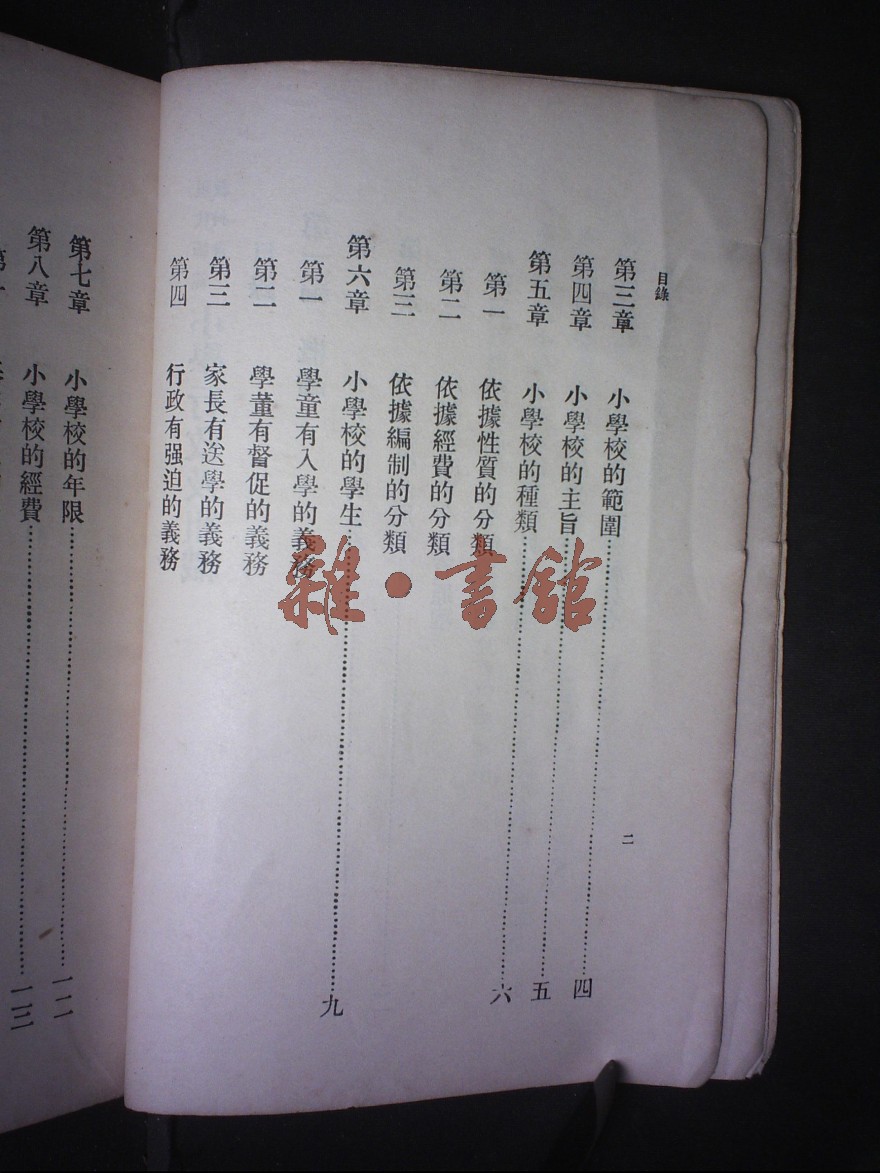 目錄
二
第三章 小學校的範圍…………四
第四章 小學校的主旨…………五
第五章 小學校的種類…………六
第一 依據性質的分類
第二 依據經費的分類
第三 依據編制的分類
第六章 小學校的學生…………九
第一 學童有入學的義務
第二 學董有督促的義務
第三 家長有送學的義務
第四 行政有强迫的義務
第七章 小學校的年限…………一二
第八章 小學校的經費…………一三
雜·書館